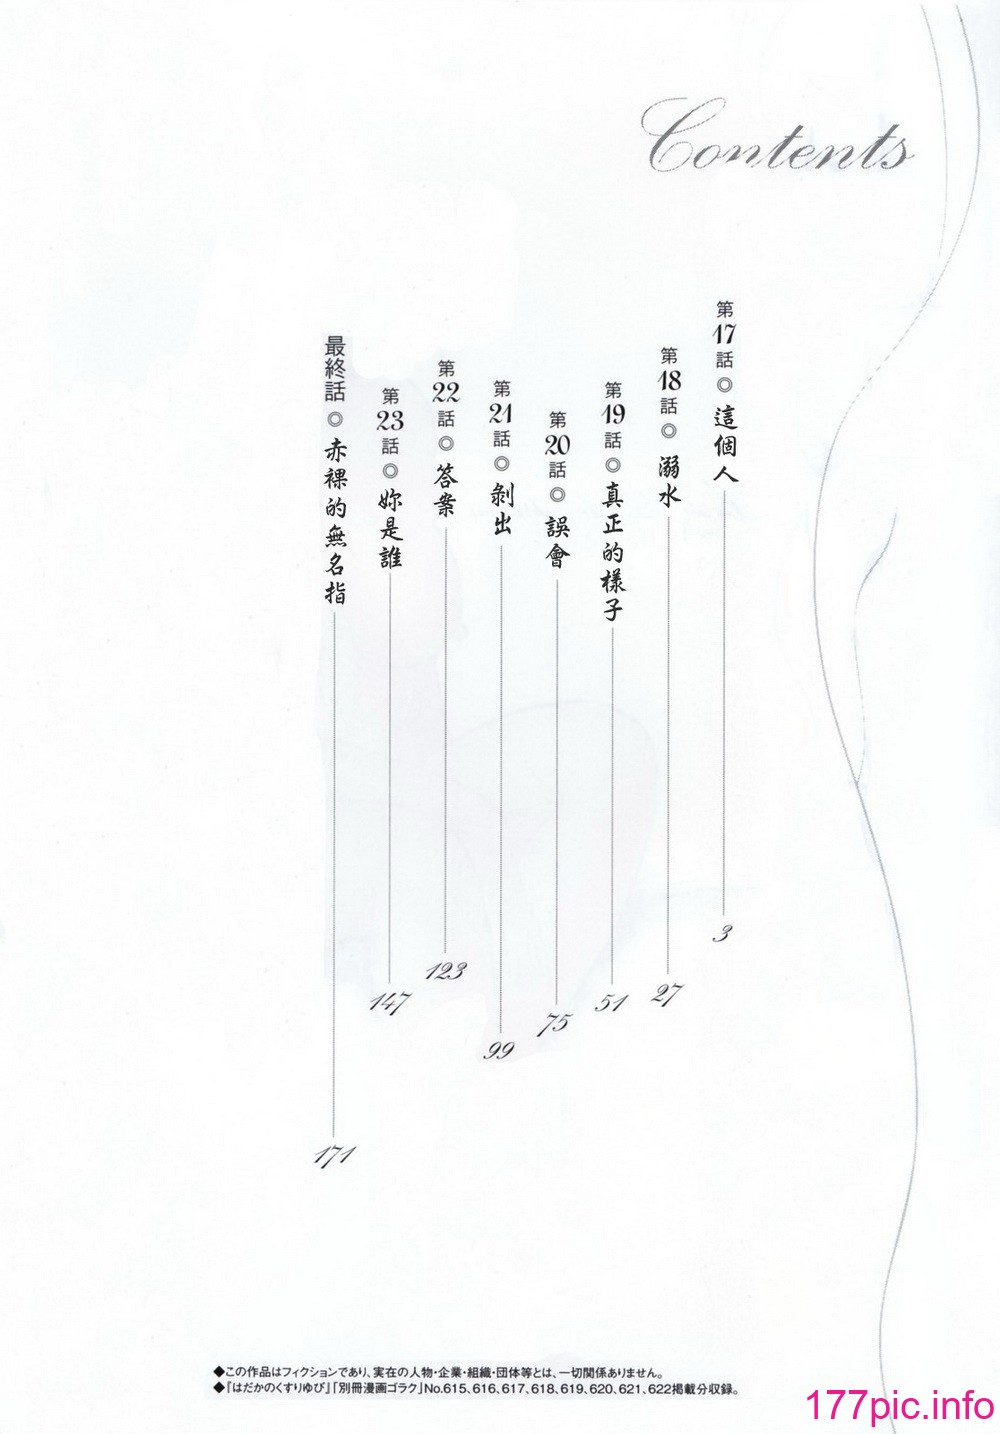 Contents
第17話◎這個人 3
第18話◎溺水 27
第19話◎真正的樣子 51
第20話◎誤會 75
第21話◎剝出 99
第22話◎答案 123
第23話◎妳是誰 147
最終話◎赤裸的無名指 171
◆この作品はフィクションであり、実在の人物・企業・組織・団体等とは、一切関係ありません。
◆『はだかのくすりゆび』「別冊漫画ゴラク」No.615、616、617、618、619、620、621、622掲載分収録。
177pic.info